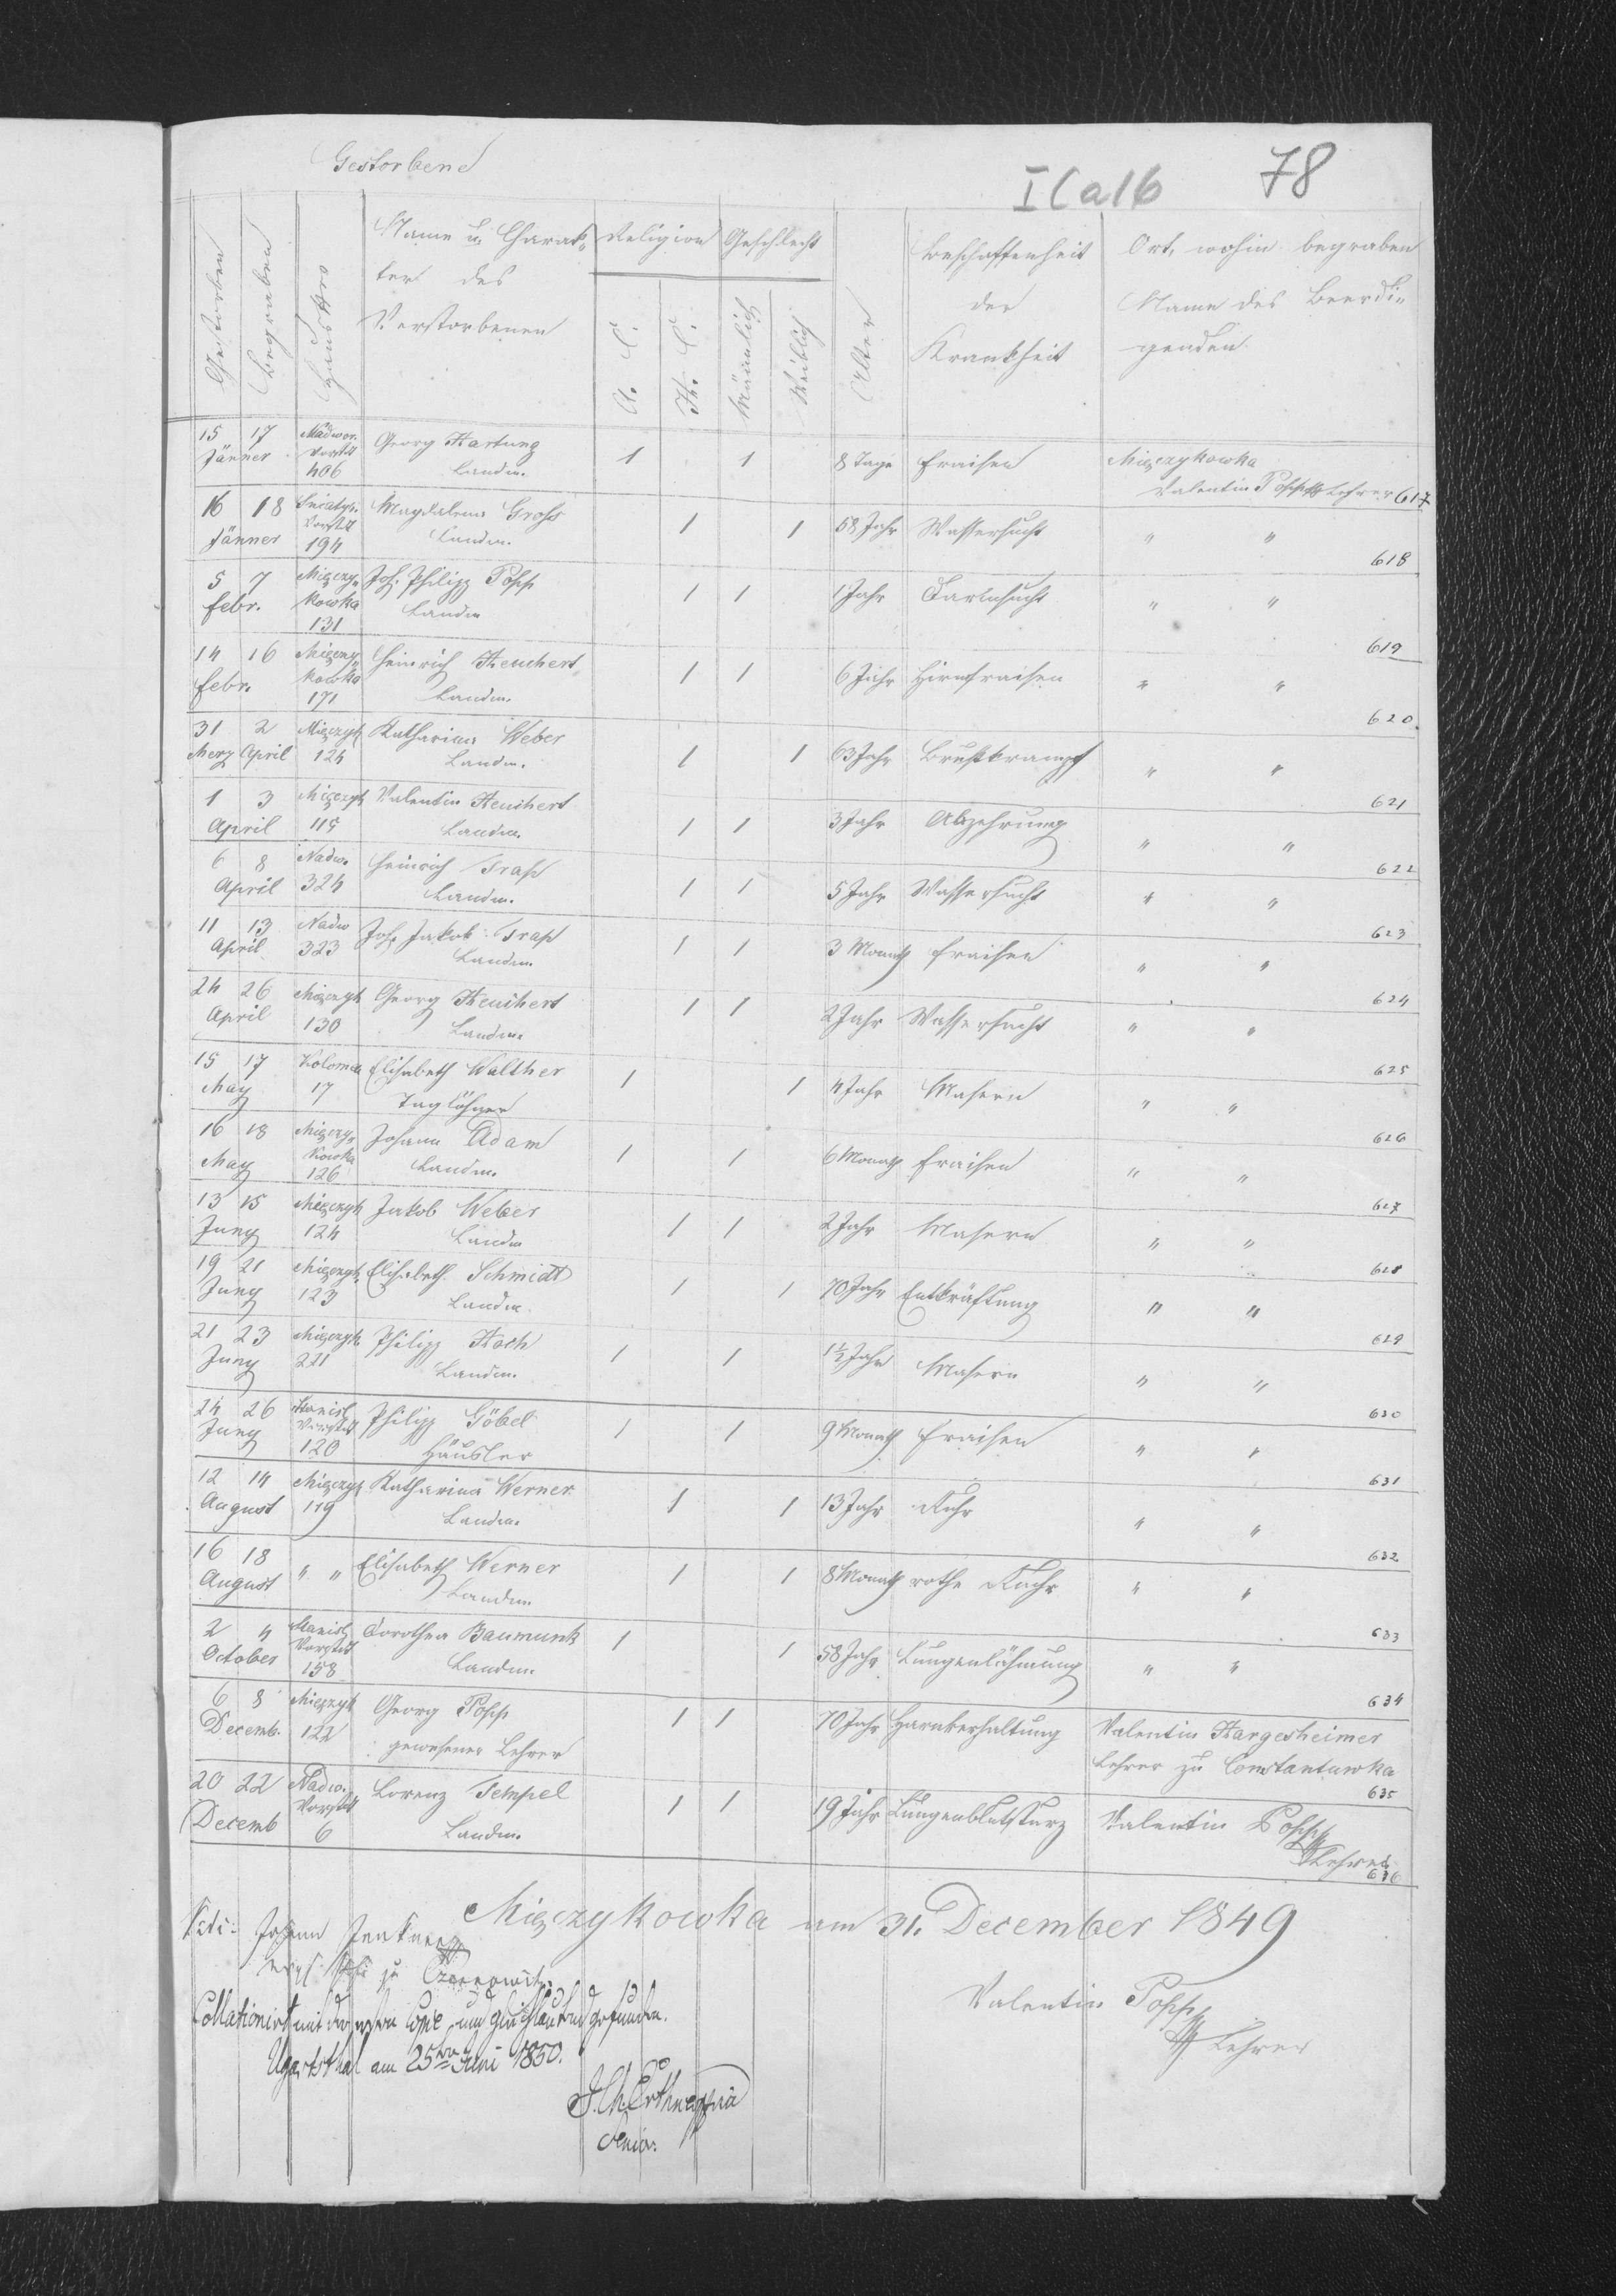 Gestorbene
I Ca 16
78
Gestorben
Begraben
Haus Nro
Name u. Charak-
ter des
Verstorbenen
Religion
A. C.
H. C.
Geschlecht
Männlich
Weiblich
Alter
Beschaffenheit
der
Krankheit
Ort, wohin begraben
Name des Beerdi-
genden.
15 17 Nadwor. Georg Hartung 1 1 8 Tage Fraisen Mięczykowka
Jänner Vorstdt Landm. Valentin Popp Lehrer 617
406
16 18 Sniatyn. Magdalena Gross 1 1 58 Jahr Wassersucht " "
Jänner Vorstdt Landm. 618
194
5 7 Mięczy- Joh. Philipp Popp 1 1 1 Jahr Darrsucht " "
Febr. kowka Landm 619
131
14 16 Mięczy- Heinrich Heuchert 1 1 6 Jahr Hirnfraisen " "
Febr. kowka Landm. 620.
171
31 2 Mięczyk Katharina Weber 1 1 63 Jahr Brustkrampf " "
Merz April 124 Landm. 621
1 3 Mięczyk Valentin Heuchert 1 1 3 Jahr Abzehrung " "
April 115 Landm. 622
6 8 Nadw. Heinrich Trap 1 1 5 Jahr Wassersucht " "
April 324 Landm. 623
11 13 Nadw Joh. Jakob Trap 1 1 3 Monath Fraisen " "
April 323 Landm. 624
24 26 Mięczyk Georg Heuchert 1 1 2 Jahr Wassersucht " "
April 130 Landm. 625
15 17 Kolomea Elisabeth Walther 1 1 4 Jahr Masern " "
May 17 Taglöhner 626
16 18 Mięczy- Johann Adam 1 1 6 Monath Fraisen " "
May kowka Landm. 627
126
13 15 Mięczyk Jakob Weber 1 1 2 Jahr Masern " "
Juny 124 Landm 628
19 21 Mięczyk. Elisabeth Schmidt 1 1 70 Jahr Entkräftung " "
Juny 123 Landm. 629
21 23 Mięczyk Philipp Hoch 1 1 1½ Jahr Masern " "
Juny 221 Landm. 630
24 26 Stanisl Philipp Göbel 1 1 9 Monath Fraisen " "
Juny Vorstdt Häusler 631
120
12 14 Mięczyk Katharina Werner 1 1 13 Jahr Ruhr " "
August 119 Landm. 632
16 18 " " Elisabeth Werner 1 1 8 Monath rothe Ruhr " "
August Landm. 633
2 4 Stanisl Dorothea Baumunk 1 1 58 Jahr Lungenlähmung " "
October Vorstdt Landm. 634
158
6 8 Mięczyk Georg Popp 1 1 70 Jahr Harnverhaltung Valentin Hargesheimer
Decemb. 122 gewesener Lehrer Lehrer zu Constantuwka
635
20 22 Nadw. Lorenz Tempel 1 1 19 Jahr Lungenblutsturz Valentin Popp
Decemb Vorstdt Landm. Lehrer
6 636
Mięczykowka am 31. December 1849
Vidi: Johann Jenkner
zu Czernowitz
Valentin Popp
Lehrer
Collationirt mit der ersten Copie und gleichlautend gefunden.
Ugartsthal am 25ten Juni 1850.
Senior.